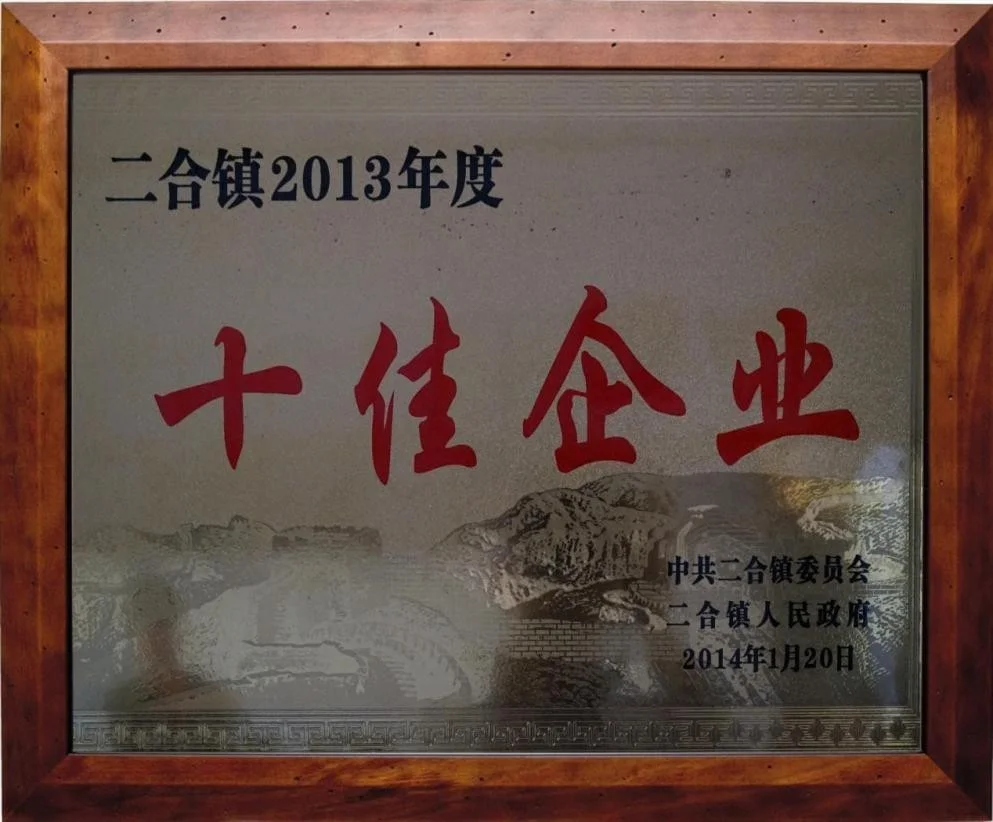 二合镇2013年度
十佳企业
中共二合镇委员会
二合镇人民政府
2014年1月20日